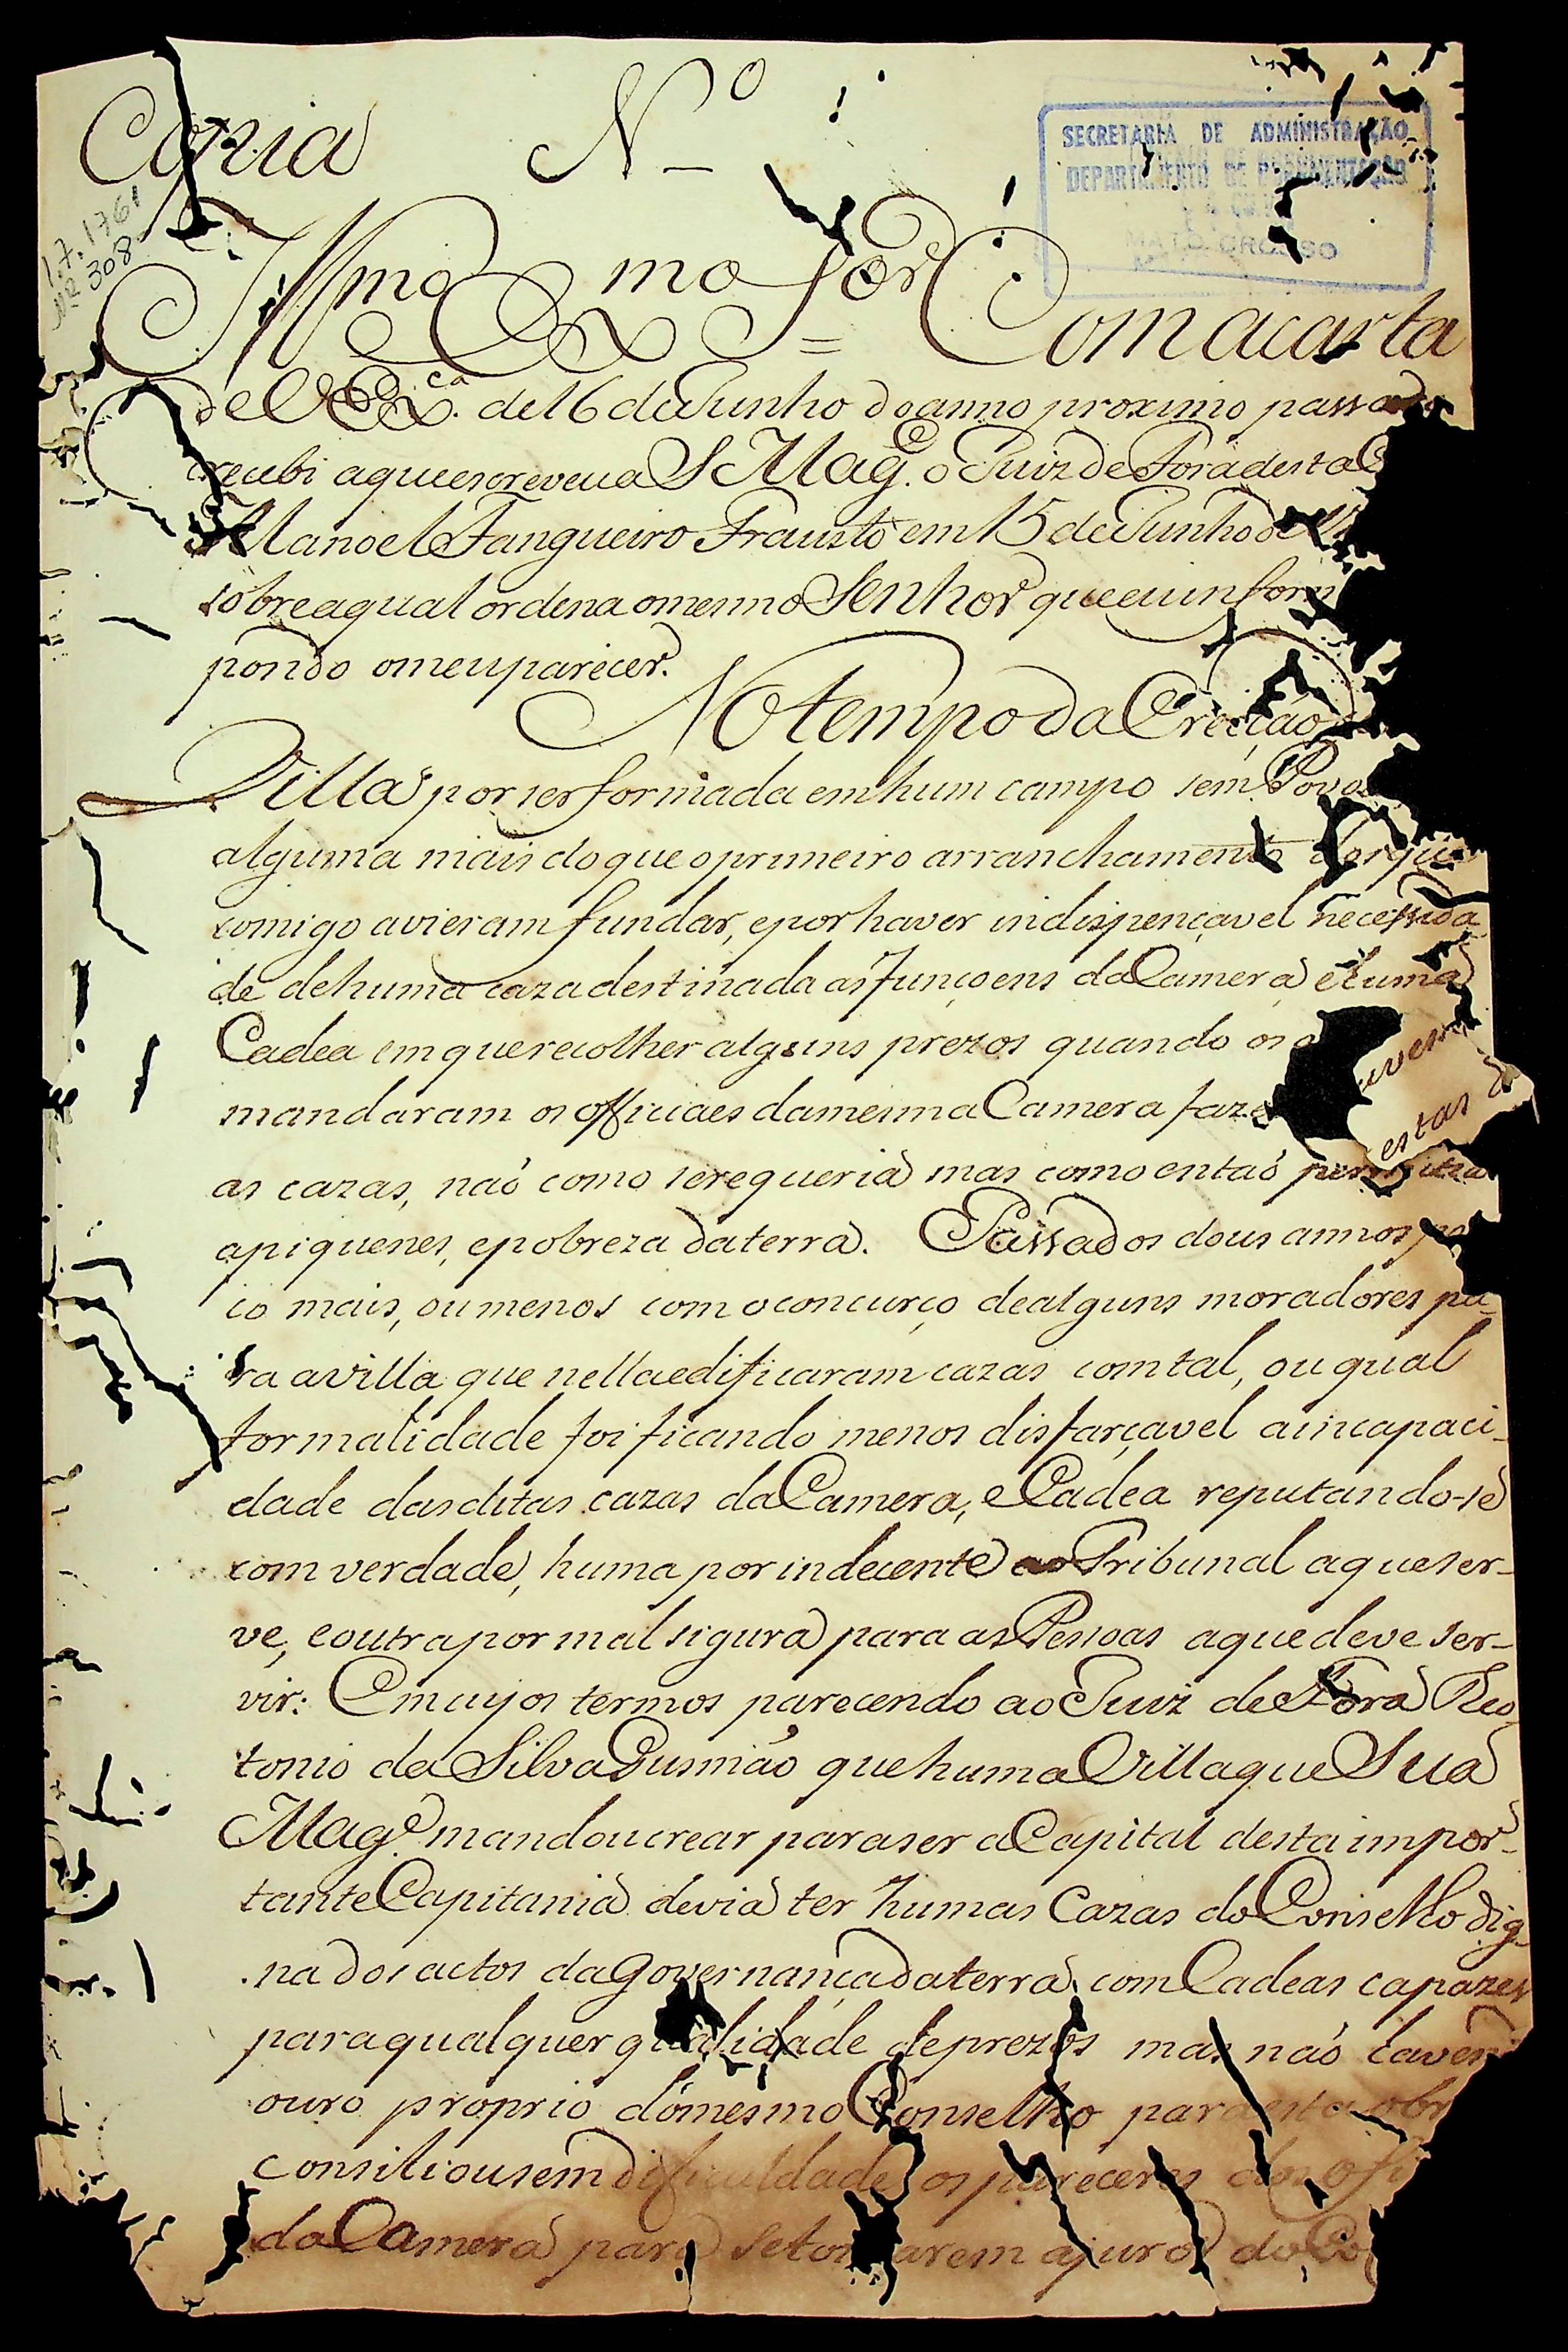 Copia Nº
1.7.1761
Nº 308
SECRETARIA DE ADMINISTRAÇÃO
DEPARTAMENTO DE DOCUMENTAÇÃO
MATO GROSSO
Illmo Exmo Sor = Com a carta
de V Exca. de 16 de Junho do anno proximo passado
recebi a que escreveu a S Mage. o Juiz de Fora desta
Manoel Fangueiro Frausto em 15 de Junho de
sobre a qual ordena o mesmo Senhor que eu inform
pondo o meu parecer.
No tempo da Creição
Villa por ser formada em hum campo sem Povoa
alguma mais do que o primeiro arranchamento dos que
comigo a vieram fundar, e por haver indispençavel necessida
de de huma caza destinada as funçoens da Camera e huma
Cadea em que recolher alguns prezos quando os
uvem
mandaram os officiaes da mesma Camera faze
estas d
as cazas, naó como se requeria mas como entaó permitia
a piquenes, e pobreza da terra. Passados dous annos po
co mais, ou menos com o concurço de alguns moradores pa-
ra a villa que nella edificaram cazas com tal, ou qual
formalidade foi ficando menos disfarçavel a incapaci-
dade das ditas cazas da Camera, e Cadea reputando-se
com verdade, huma por indecente ao Tribunal a que ser-
ve, e outra por mal sigura para as Pessoas a que deve ser-
vir: Em cujos termos parecendo ao Juiz de Fora Teo
tonio da Silva Gusmão que huma Villa que Sua
Mage. mandou crear para ser a Capital desta impor-
tante Capitania devia ter humas Cazas do Conselho dig-
na dos actos da Governança da terra, com Cadeas capazes
para qualquer qualidade de prezos mas naó havend
ouro proprio do mesmo Conselho para esta obr
consiliou sem dificuldade os pareceres dos ofi
da Camera para se tomarem a juros do Co